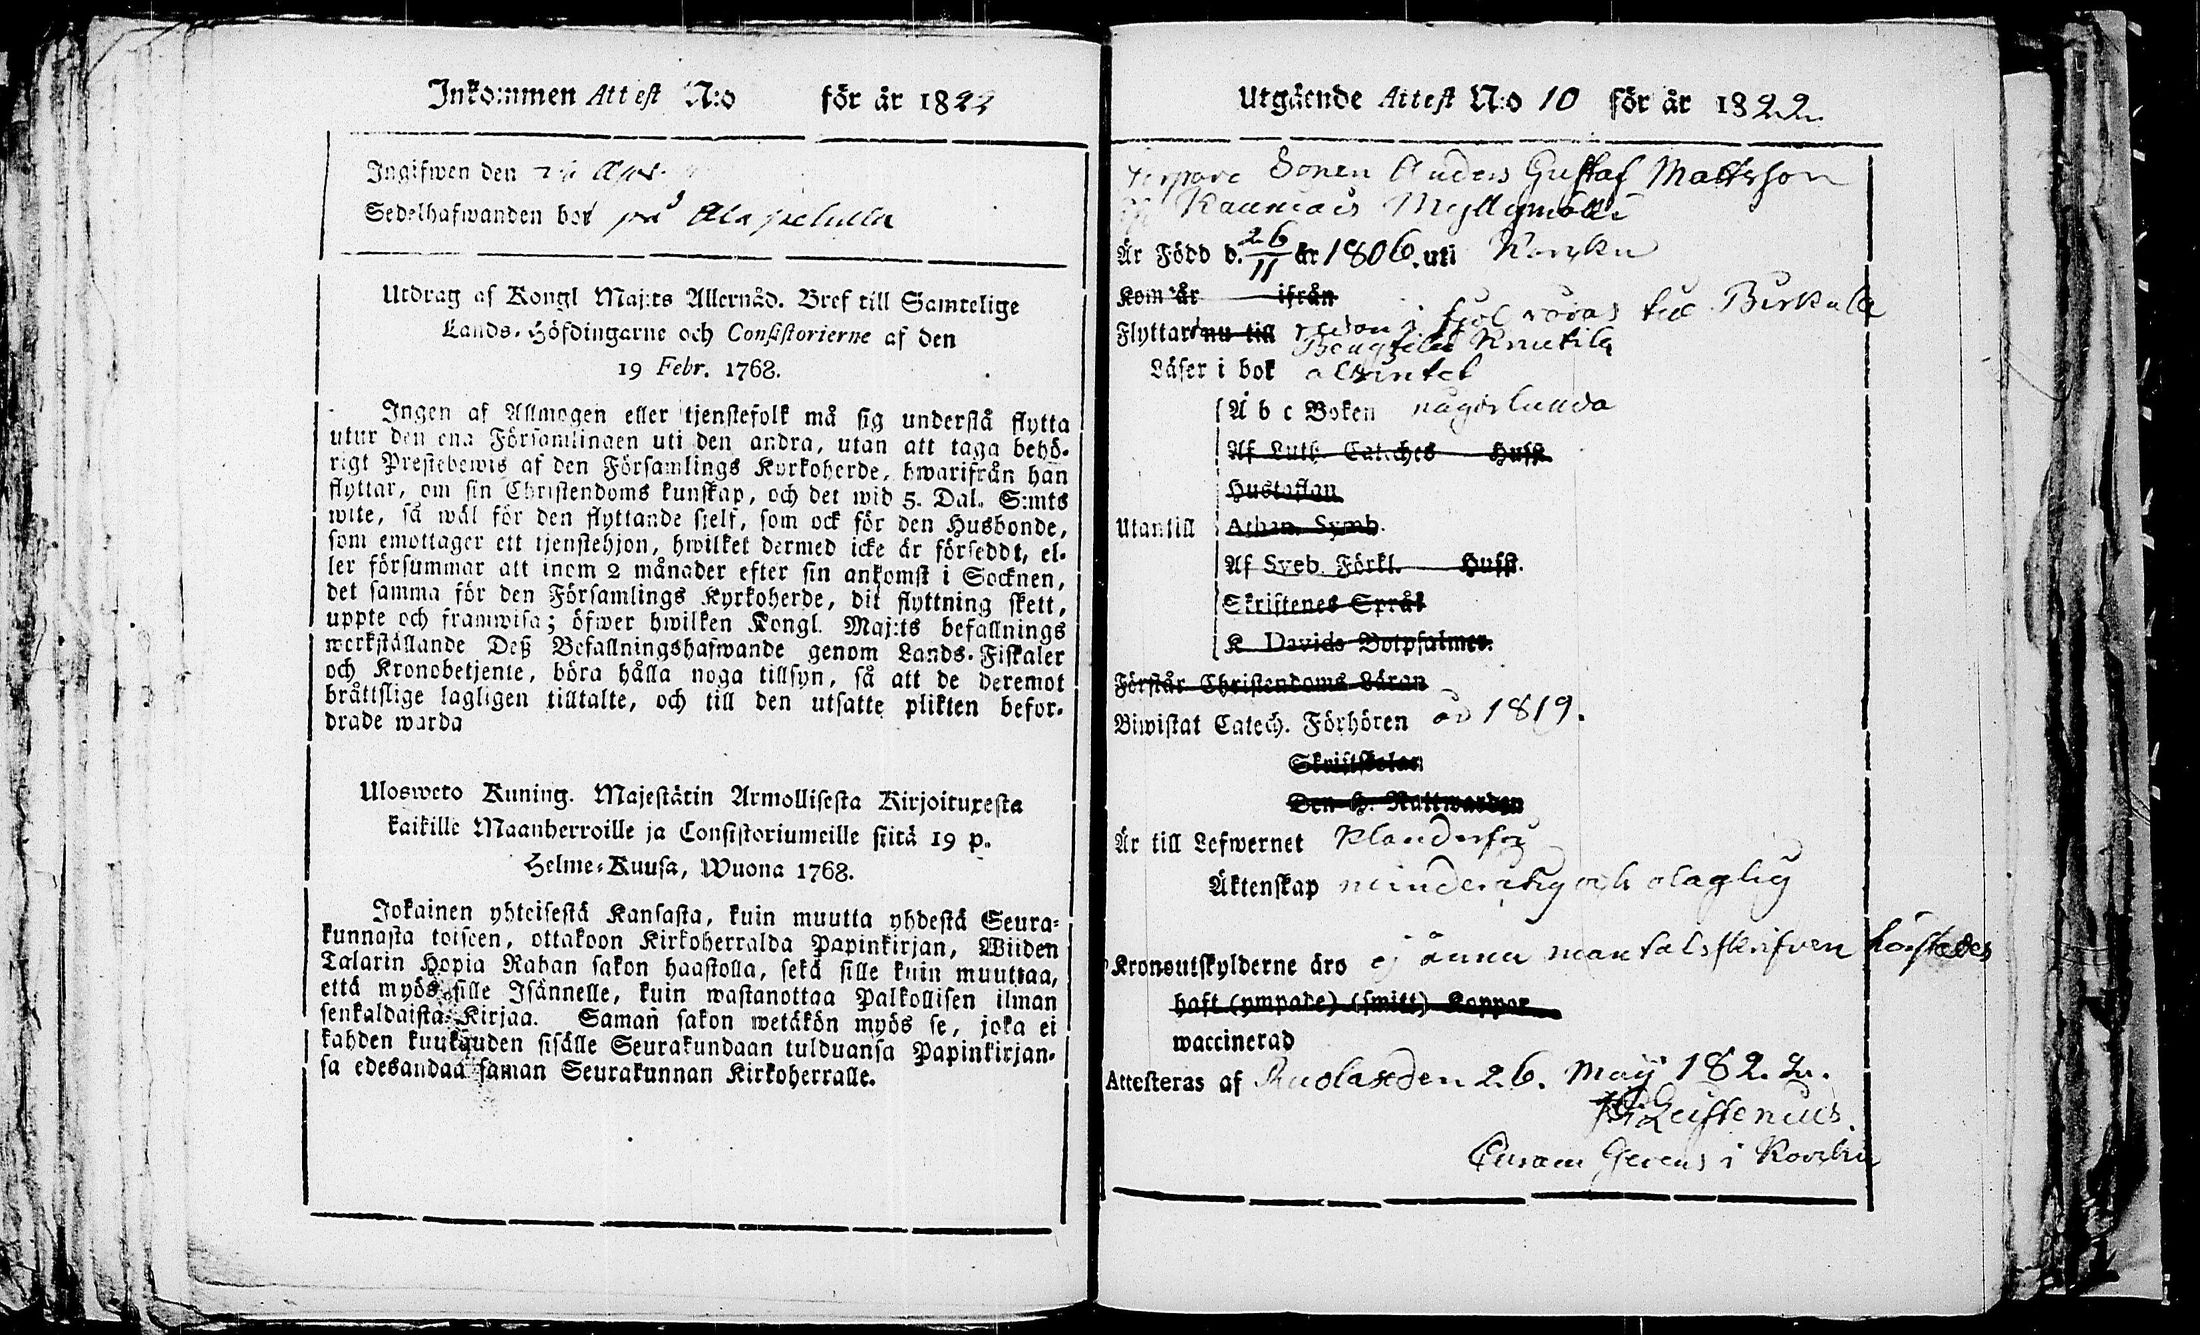 Inkommen Attest N:o för år 1822
Ingifwen den
Sedelhafwanden bor på Ala pelulla
Utdrag af Kongl Maj:ts Allernåd. Bref till Samtelige
Lands-Höfdingarne och Consistorierne af den
19 Febr. 1768.
Ingen af Allmogen eller tjenstefolk må sig understå flytta
utur den ena Församlingen uti den andra, utan att taga behö-
rigt Prestebewis af den Församlings Kyrkoherde, hwarifrån han
flyttar, om sin Christendoms kunskap, och det wid 5. Dal. S:mts
wite, så wäl för den flyttande sjelf, som ock för den Husbonde,
som emottager ett tjenstehjon, hwilket dermed icke är försedt, el-
ler försummar att inom 2 månader efter sin ankomst i Socknen,
det samma för den Församlings Kyrkoherde, dit flyttning skett,
uppte och framwisa; öfwer hwilken Kongl. Maj:ts befallnings
werkställande Deß Befallningshafwande genom Lands-Fiskaler
och Kronobetjente, böra hålla noga tillsyn, så att de deremot
bråttslige lagligen tilltalte, och till den utsatte plikten befor-
drade warda
Ulosweto Kuning. Majestätin Armollisesta Kirjoituxesta
kaikille Maanherroille ja Consistoriumeille siitä 19 p.
Helme-Kuusa, Wuona 1768.
Jokainen yhteisestä Kansasta, kuin muutta yhdestä Seura-
kunnasta toiseen, ottakoon Kirkoherralda Papinkirjan, Wiiden
Talarin Hopia Rahan sakon haastolla, sekä sille kuin muuttaa,
että myös sille Isännelle, kuin wastanottaa Palkollisen ilman
senkaldaista Kirjaa. Saman sakon wetäkön myös se, joka ei
kahden kuukauden sisälle Seurakundaan tulduansa Papinkirjan-
sa edesandaa saman Seurakunnan Kirkoherralle.
Utgående Attest N:o 10 för år 1822.
Torpare Sonen Anders Gustaf Mattsson
Kauniais Myllymäki
Är Född d. 26/11 år 1806. uti
Kom år ifrån
Flyttar nu till redan i fjol till Birkala
Knutila
Läser i bok alsintet
A b c Boken någorlunda
Af Luth. Cateches Husst.
Hustaflan
Utantill Athan. Symb.
Af Sveb. Förkl. Husst.
Skriftenes Språk
K Davids Botpsalmer.
Förstår Christendoms Läran
Biwistat Catech. Förhören år 1819.
Skriftskolan
Den H. Nattwarden
Är till Lefwernet Klanderfri
Äktenskap minderårig och olaglig
Kronoutskylderne äro ej ännu mantalsskrifven härstädes
haft (ympade) (smitt) Koppor
waccinerad
Attesteras af den 26. Maij 1822.
i